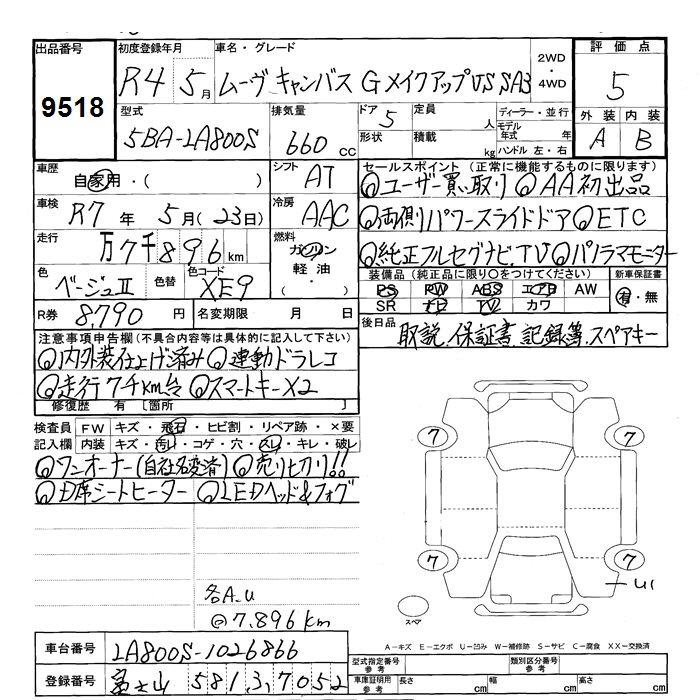 出品番号
9518
初度登録年月
R4 5月
車名・グレード
ムーヴ キャンバス G メイクアップVS SAⅢ
2WD・4WD
評価点
5
外装 内装
A B
型式
5BA-LA800S
排気量
660 cc
ドア 5
定員 人
形状
積載 kg
ディーラー・並行
モデル年式 年
ハンドル 左・右
車歴
自家用・( )
シフト
AT
車検
R7年 5月(23日)
冷房
AAC
走行
万7千896 km
燃料
ガソリン
軽油・
( )
色
ベージュⅡ
色替
色コード
XE9
R券
8,790円
名変期限 月 日
セールスポイント (正常に機能するものに限ります)
ユーザー買い取り AA初出品
両側パワースライドドア ETC
純正フルセグナビ.TV パノラマモニター
装備品(純正品に限り○をつけてください)
PS PW ABS エアB AW
SR ナビ TV カワ
新車保証書
有・無
後日品
取説 保証書 記録簿.スペアキー
注意事項申告欄(不具合内容等は具体的に記入して下さい)
内外装仕上げ済み 連動ドラレコ
走行7千km台 スマートキーX2
修復歴 有 [箇所 ]
検査員記入欄
FW キズ・飛石・ヒビ割・リペア跡・×要
内装 キズ・汚レ・コゲ・穴・スレ・キレ・破レ
ワンオーナー(自社名変済) 売り切り!!
D席シートヒーター LEDヘッド&フォグ
各A.U
@7.896km
7
7
7
7
U1
スペア
A-キズ E-エクボ U-凹み W-補修跡 S-サビ C-腐食 XX-交換済
車台番号
LA800S-1026866
登録番号
富士山 581 ろ 7052
型式指定番号
参考
類別区分番号
参考
車庫証明用
参考
長さ cm
幅 cm
高さ cm